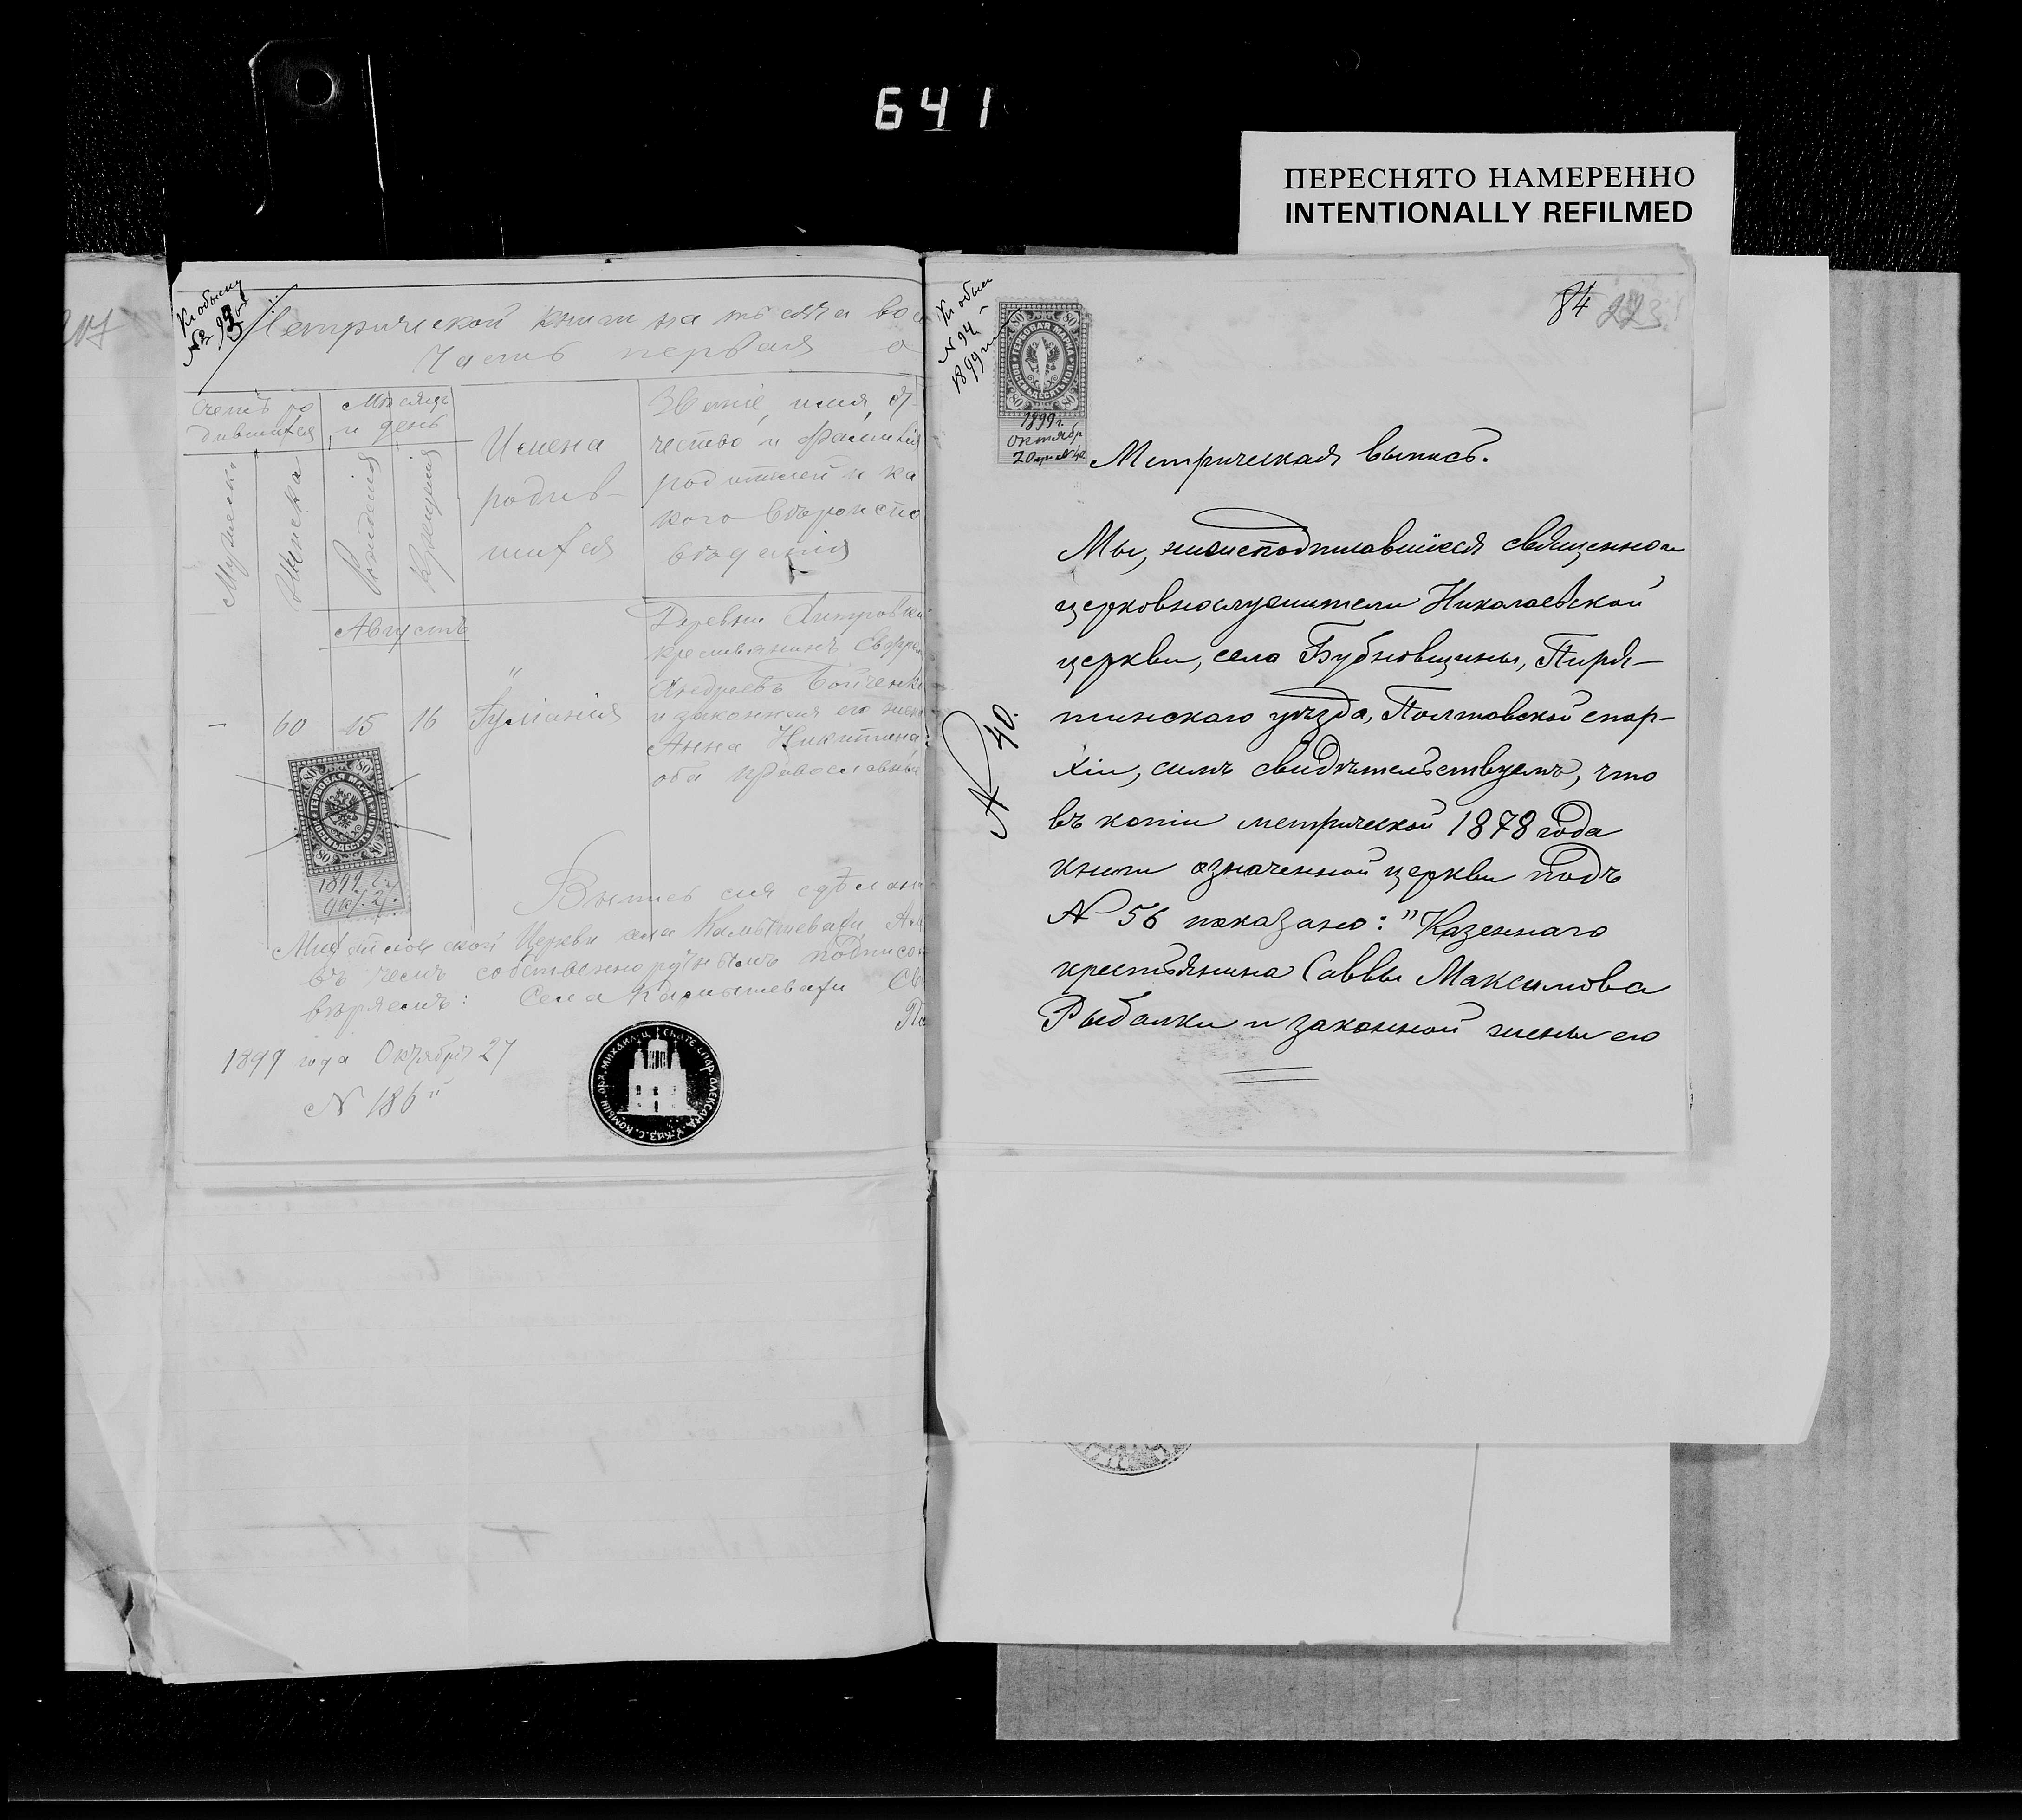 641
ПЕРЕСНЯТО НАМЕРЕННО
INTENTIONALLY REFILMED
Къ обыску
№ 93
Метрической книги на тысяча во
Часть первая о
Счетъ ро
дившихся
Мѣсяцъ
и день
Мужеска
Женска
Рожденія
Крещенія
Имена
родив-
шихся
Званіе, имя, от-
чество и фамилія
родителей и ка
кого вѣроиспо
вѣданія
Августъ
–
60
15
16
Іуліанія
Деревни
крестьянинъ Ефре
Андреевъ Бойченко
и законная его жен
Анна Никитина
оба православные
80 80
ГЕРБОВАЯ МАРКА
ВОСЕМЬДЕСЯТЪ КОП.
80 80
1899
Выпись сія сдѣлан
Церкви села
въ чемъ собственноручнымъ подписо
вѣряемъ: Села Св
1899 года Октября 27
№ 186
84 223
Къ обыск
№ 94
1899
80 80
ГЕРБОВАЯ МАРКА
ВОСЕМЬДЕСЯТЪ КОП.
80 80
1899 г.
Октябр
20 дня № 40
Метрическая выпись.
№ 40.
Мы, нижеподписавшіеся священно и
церковнослужители Николаевской
церкви, села Бубновщины, Пиря-
тинскаго уѣзда, Полтавской епар-
хіи, симъ свидѣтельствуемъ, что
въ копіи метрической 1878 года
книги означенной церкви подъ
№ 56 показано: "Казеннаго
крестьянина Саввы Максимова
Рыбалки и законной жены его